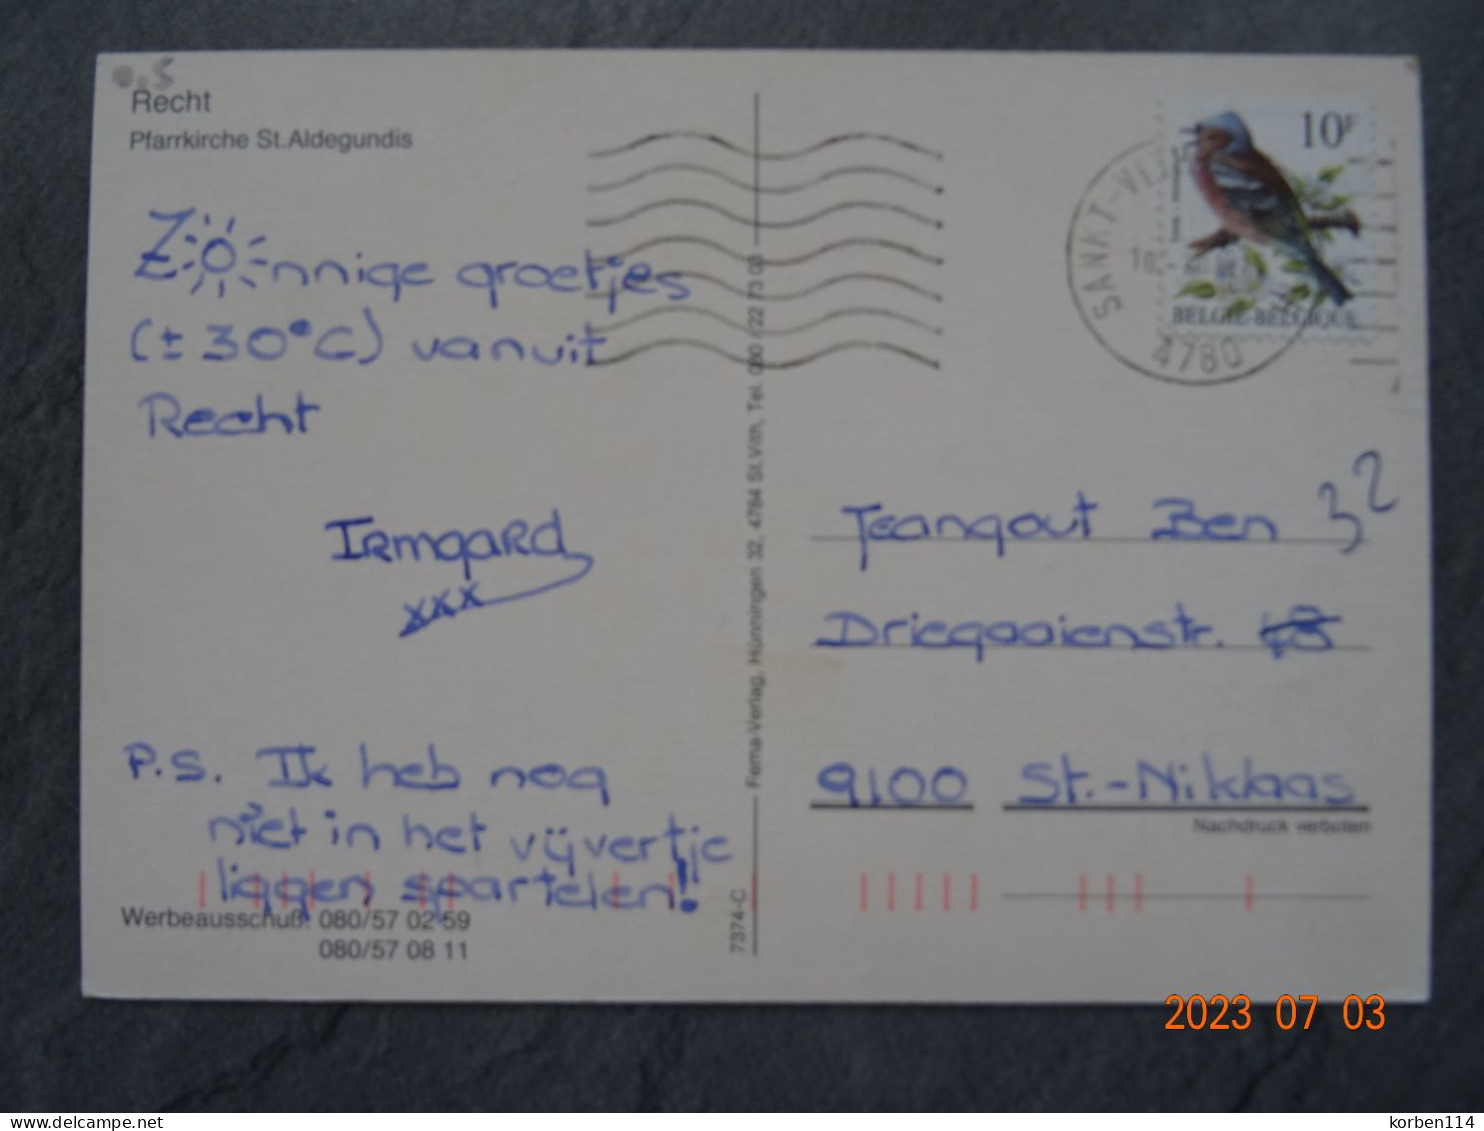 Recht
Pfarrkirche St.Aldegundis
Zonnige groetjes
(± 30°C) vanuit
Recht
Irmgard
xxx
P.S. Ik heb nog
niet in het vijvertje
liggen spartelen!
Werbeausschuß: 080/57 02 59
080/57 08 11
7374-C
Fema-Verlag, Hünningen 32, 4784 St.Vith, Tel. 080 / 22 73 03
10F
BELGIË-BELGIQUE
4780
Teangout Ben 32
Driegaaienstr.
9100 St.-Niklaas
Nachdruck verboten
2023 07 03
korben114